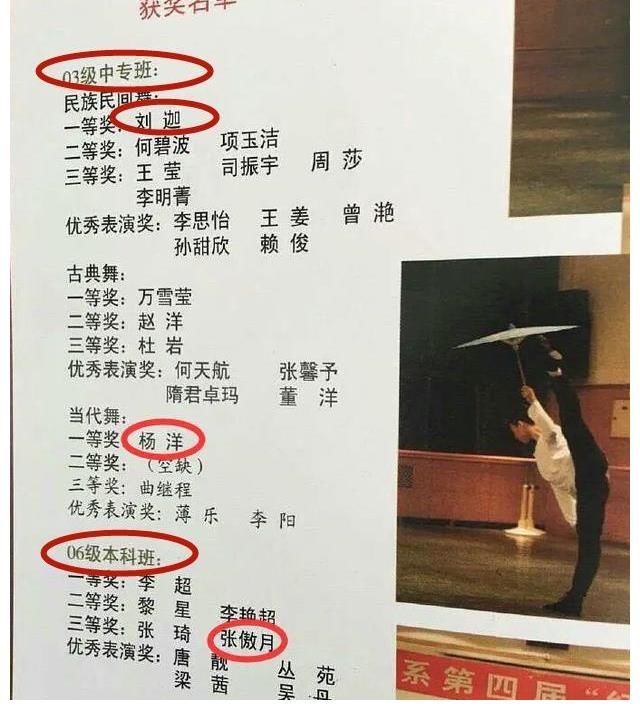 获奖名单
03级中专班：
民族民间舞：
一等奖：刘 迦
二等奖：何碧波 项玉洁
三等奖：王 莹 司振宇 周 莎
李明菁
优秀表演奖：李思怡 王 姜 曾 滟
孙甜欣 赖 俊
古典舞：
一等奖：万雪莹
二等奖：赵 洋
三等奖：杜 岩
优秀表演奖：何天航 张馨予
隋君卓玛 董 洋
当代舞：
一等奖：杨 洋
二等奖：（空缺）
三等奖：曲继程
优秀表演奖：薄 乐 李 阳
06级本科班：
一等奖：李 超
二等奖：黎 星 李艳超
三等奖：张 琦 张傲月
优秀表演奖：唐 靓 丛 苑
梁 茜 吴 丹
系第四届“